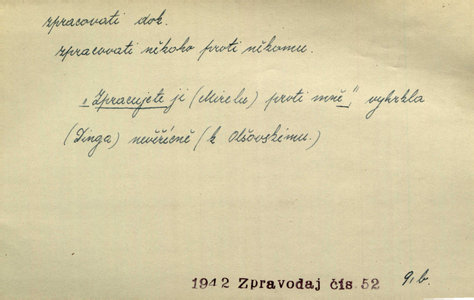 zpracovati dok.
zpracovati někoho proti někomu.
„Zpracujete ji (Mirelu) proti mně,“ vyhrkla
(Inga) nevěřícně (k Olšovskému.)
1942 Zpravodaj čís. 52 9, b.